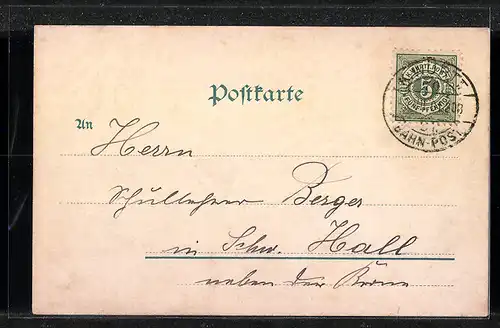 Postkarte
An
Herrn
Schullehrer Berger
in Schw. Hall
neben der Krone
5
BAHN-POST